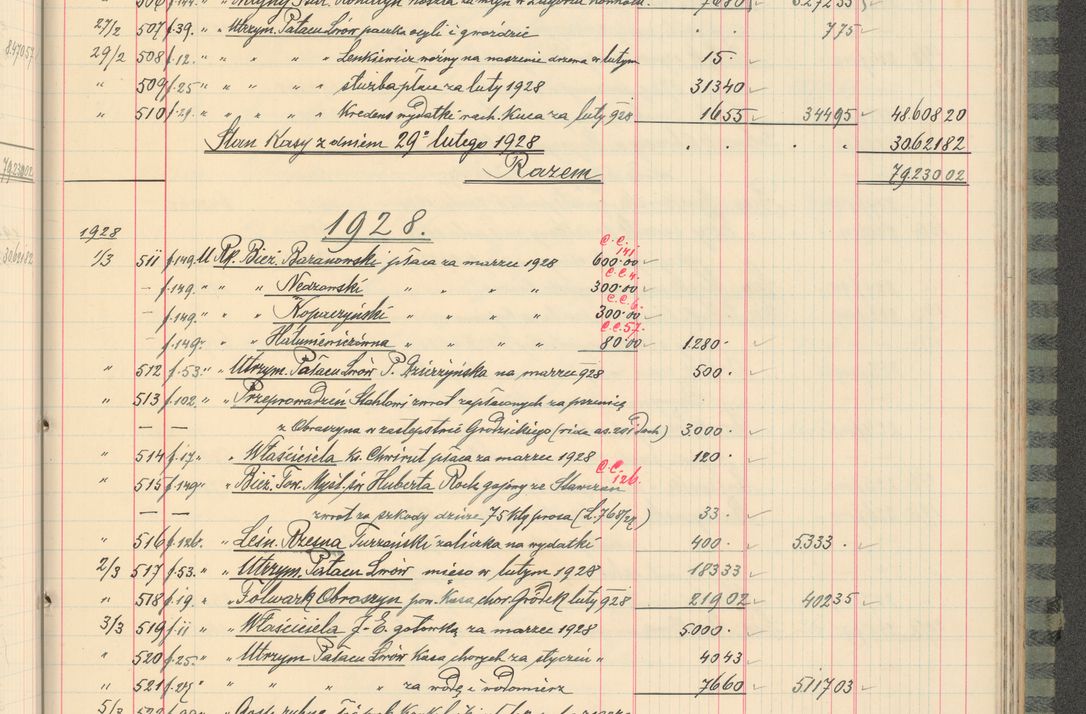 27/2 507 f.39. " " Utrzym. Pałacu Lwów paczka ocyli i gwoździe . . 775
29/2 508 f.12. " " " " Lenkiewicz woźny na noszenie drzewa w lutym 15.
" 509 f.25 " " " " służba płace za luty 1928 31340
" 510 " " " " Kredens wydatki rach. Kuca za luty 928 1655 34495 48.60820
Stan Kasy z dniem 29º lutego 1928 . . . . 3062182
Razem 79.23002
79.23002
1928.
1928
3062182
C.C. 141
1/3 511 f.149. U Rk. Bież. Baranowski płaca za marzec 1928 600.00
C.C.4.
— f.149. " " " Nedzowski " " " " 300.00
C.C.6.
— f.149. " " " Kopaczyński " " " " 300.00
C.C.57.
— f.149. " " Hałuniewiczówna " " " " 80.00 1.280.
" 512 f.53. " " Utrzym. Pałacu Lwów P. Dzierżyńska na marzec 928 500.
" 513 f.102. " " Przeprowadzeń Stahlowi zwrot zapłaconych za pszenicę
— — z Obroszyna w zastępstwie Grodzickiego 3.000.
" 514 f.17. " Właściciela Ks. Chwirut płaca za marzec 1928 120.
C.C. 126.
" 515 f.149. " Bież. Tow. Myśl. św. Huberta Rock gajowy ze Stawczan
— — zwrot za szkody dzicze 75 klg prosa (L.768/27) 33.
" 516 f.126. " Leśn. Rzesna Turzański zaliczka na wydatki 400. 5.333.
2/3 517 f.53. " Utrzym. Pałacu Lwów mięso w lutym 1928 18333
" 518 f.19. " " Folwark Obroszyn pow. Kasa chor. Gródek luty 928 21902 40235
3/3 519 f.11 " " Właściciela J. E. gotówką za marzec 1928 5.000.
" 520 f.25. " " Utrzym Pałacu Lwów Kasa chorych za styczeń " 4043
" 521 " " " " za wodę i wodomierz 7660 511703
5/3